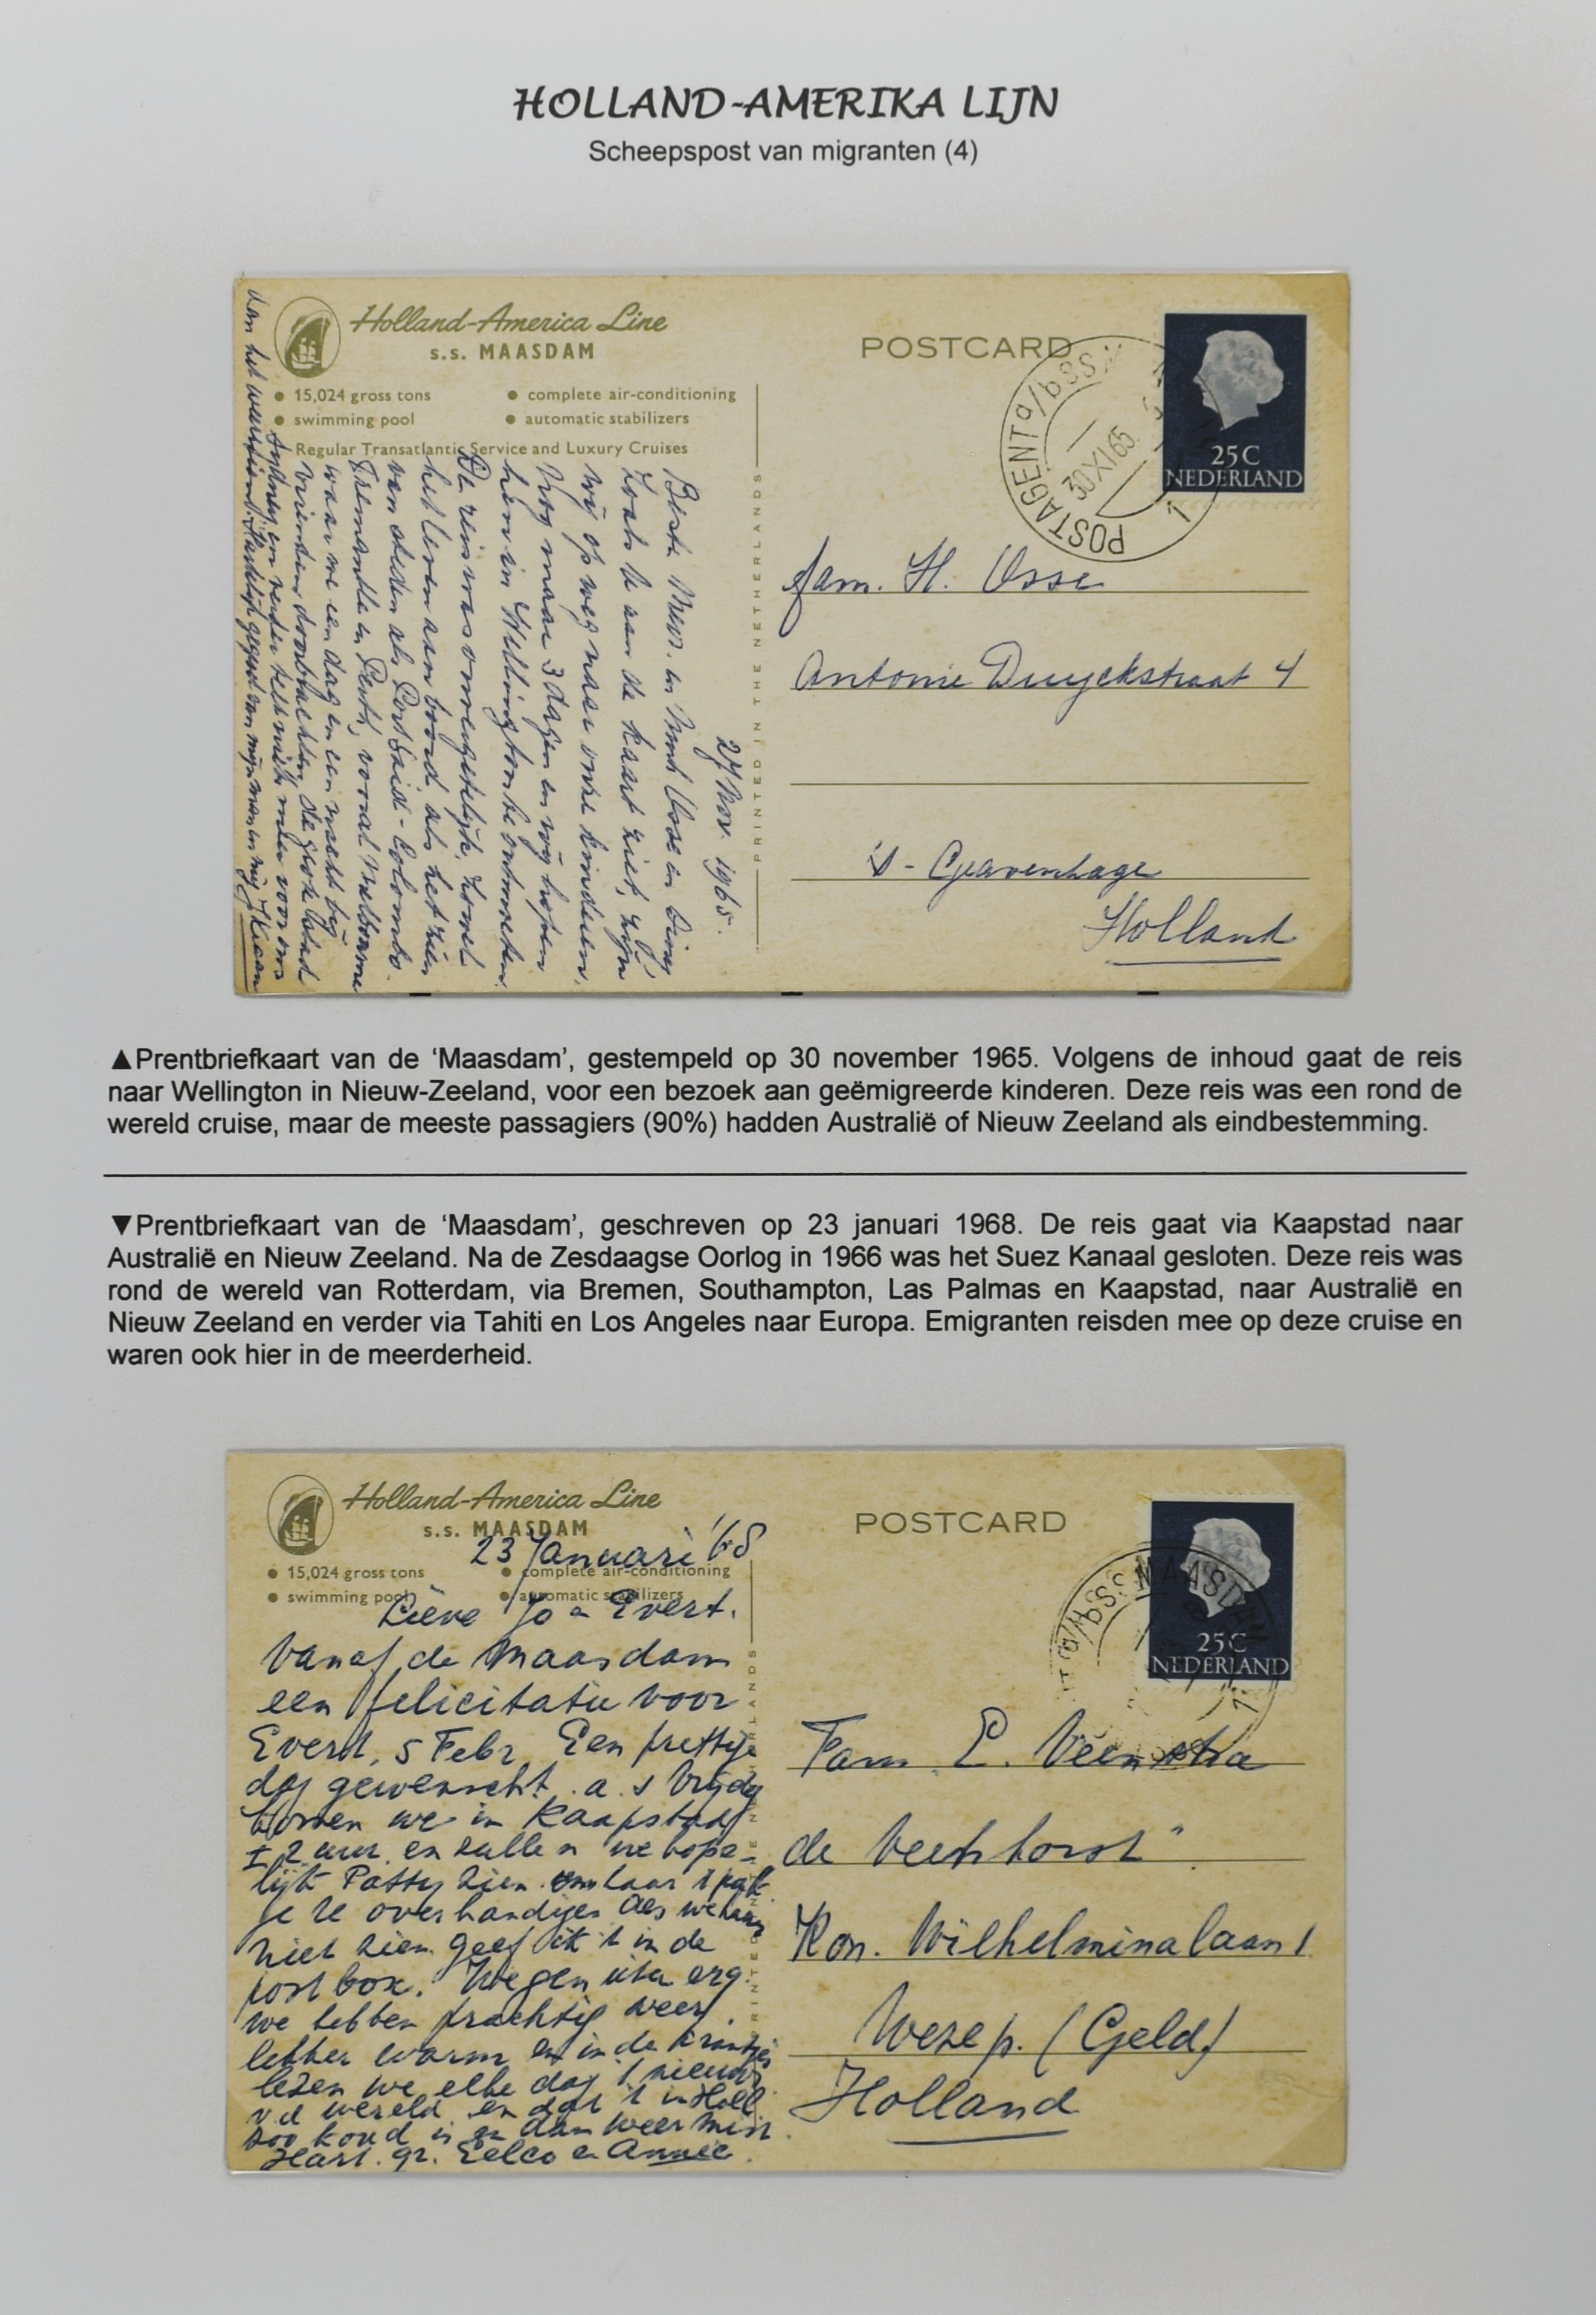 HOLLAND-AMERIKA LIJN
Scheepspost van migranten (4)
Holland-America Line
s.s. MAASDAM
15,024 gross tons
complete air-conditioning
swimming pool
automatic stabilizers
Regular Transatlantic Service and Luxury Cruises
27 Nov. 1965.
Beste Mevr. en
Zoals U aan de kaart ziet, zijn
wij op weg naar onze kinderen.
Nog maar 3 dagen en wij hopen
hun in Wellington te ontmoeten.
De reis was onvergetelijk, zowel
het leven aan boord, als het zien
van steden als Port Said - Colombo.
Fremantle en Perth, vooral Melbourne
waar we een dag en een nacht bij
vrienden doorbrachten, de grote stad
Sydney en verder
van het Hartelijk gegroet van mijn man en mij
PRINTED IN THE NETHERLANDS
POSTCARD
POSTAGENT a/b SS
30 XI 65
1
25C
NEDERLAND
fam. H. Osse
Antonie Duyckstraat 4
's-Gravenhage
Holland
▲Prentbriefkaart van de ‘Maasdam’, gestempeld op 30 november 1965. Volgens de inhoud gaat de reis
naar Wellington in Nieuw-Zeeland, voor een bezoek aan geëmigreerde kinderen. Deze reis was een rond de
wereld cruise, maar de meeste passagiers (90%) hadden Australië of Nieuw Zeeland als eindbestemming.
▼Prentbriefkaart van de ‘Maasdam’, geschreven op 23 januari 1968. De reis gaat via Kaapstad naar
Australië en Nieuw Zeeland. Na de Zesdaagse Oorlog in 1966 was het Suez Kanaal gesloten. Deze reis was
rond de wereld van Rotterdam, via Bremen, Southampton, Las Palmas en Kaapstad, naar Australië en
Nieuw Zeeland en verder via Tahiti en Los Angeles naar Europa. Emigranten reisden mee op deze cruise en
waren ook hier in de meerderheid.
Holland-America Line
s.s. MAASDAM
15,024 gross tons
complete air-conditioning
swimming pool
automatic stabilizers
23 Januari '68
Lieve Jo en Evert.
Vanaf de Maasdam
een felicitatie voor
Evert, 5 Febr. Een prettige
dag gewenscht. a.s Vrijdag
komen we in Kaapstad
± 2 uur en zullen we hope-
lijk Patty zien om haar 't pak
je te overhandigen Als we haar
niet zien geef ik 't in de
post box.
we hebben prachtig weer.
lekker warm en in de krantjes
lezen we elke dag 't nieuws
v d wereld en dat 't in Holl
zoo koud is en dan weer mist
Hart. gr. Eelco en Annie.
POSTCARD
a/b SS MAASDAM
1
25C
NEDERLAND
Fam E. Veenstra
de Veenhorst"
Kon. Wilhelminalaan 1
Wezep. (Geld)
Holland